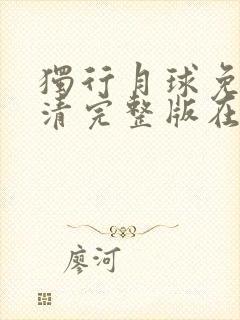 獨行月球免
清完整版在
廖河